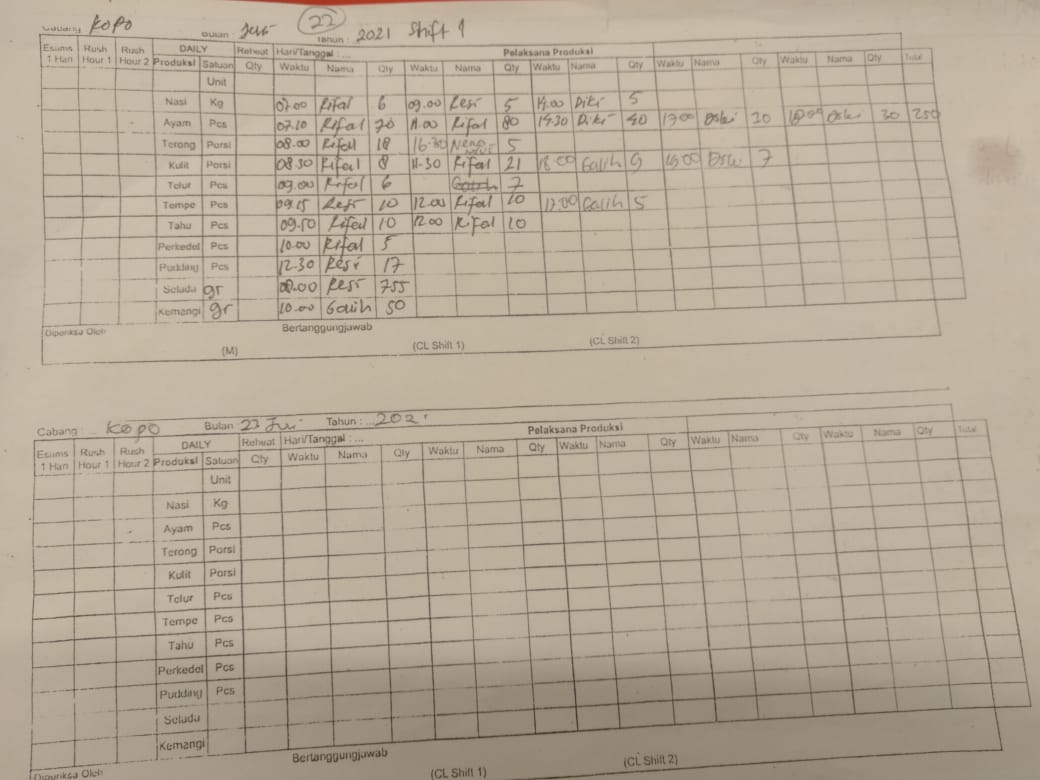 Cabang Kopo Bulan : Juni 22 Tahun : 2021 Shift 1
Esums Rush Rush DAILY Reheat Hari/Tanggal : ... Pelaksana Produksi
1 Hari Hour 1 Hour 2 Produksi Satuan Qty Waktu Nama Qty Waktu Nama Qty Waktu Nama Qty Waktu Nama Qty Waktu Nama Qty Total
Unit
Nasi Kg 07.00 Rifal 6 09.00 Resi 5 14.00 Diki 5
Ayam Pcs 07.10 Rifal 70 11.00 Rifal 80 14.30 Diki 40 17.00 20 18.00 30 250
Terong Porsi 08.00 Rifal 18 16.30 Neng 5
Kulit Porsi 08.30 Rifal 8 11.30 Rifal 21 18.00 Galih 9 19.00 7
Telur Pcs 09.00 Rifal 6 7
Tempe Pcs 09.15 Resi 10 12.00 Rifal 10 17.00 Galih 5
Tahu Pcs 09.50 Rifal 10 12.00 Rifal 10
Perkedel Pcs 10.00 Rifal 5
Pudding Pcs 12.30 Resi 17
Selada gr 08.00 Resi 755
Kemangi gr 10.00 Galih 50
Diperiksa Oleh Bertanggungjawab
(M) (CL Shift 1) (CL Shift 2)
Cabang ... Kopo Bulan 23 Juni Tahun : ... 2021
Esums Rush Rush DAILY Reheat Hari/Tanggal : ... Pelaksana Produksi
1 Hari Hour 1 Hour 2 Produksi Satuan Qty Waktu Nama Qty Waktu Nama Qty Waktu Nama Qty Waktu Nama Qty Waktu Nama Qty Total
Unit
Nasi Kg
Ayam Pcs
Terong Porsi
Kulit Porsi
Telur Pcs
Tempe Pcs
Tahu Pcs
Perkedel Pcs
Pudding Pcs
Selada
Kemangi
Diperiksa Oleh Bertanggungjawab
(CL Shift 1) (CL Shift 2)